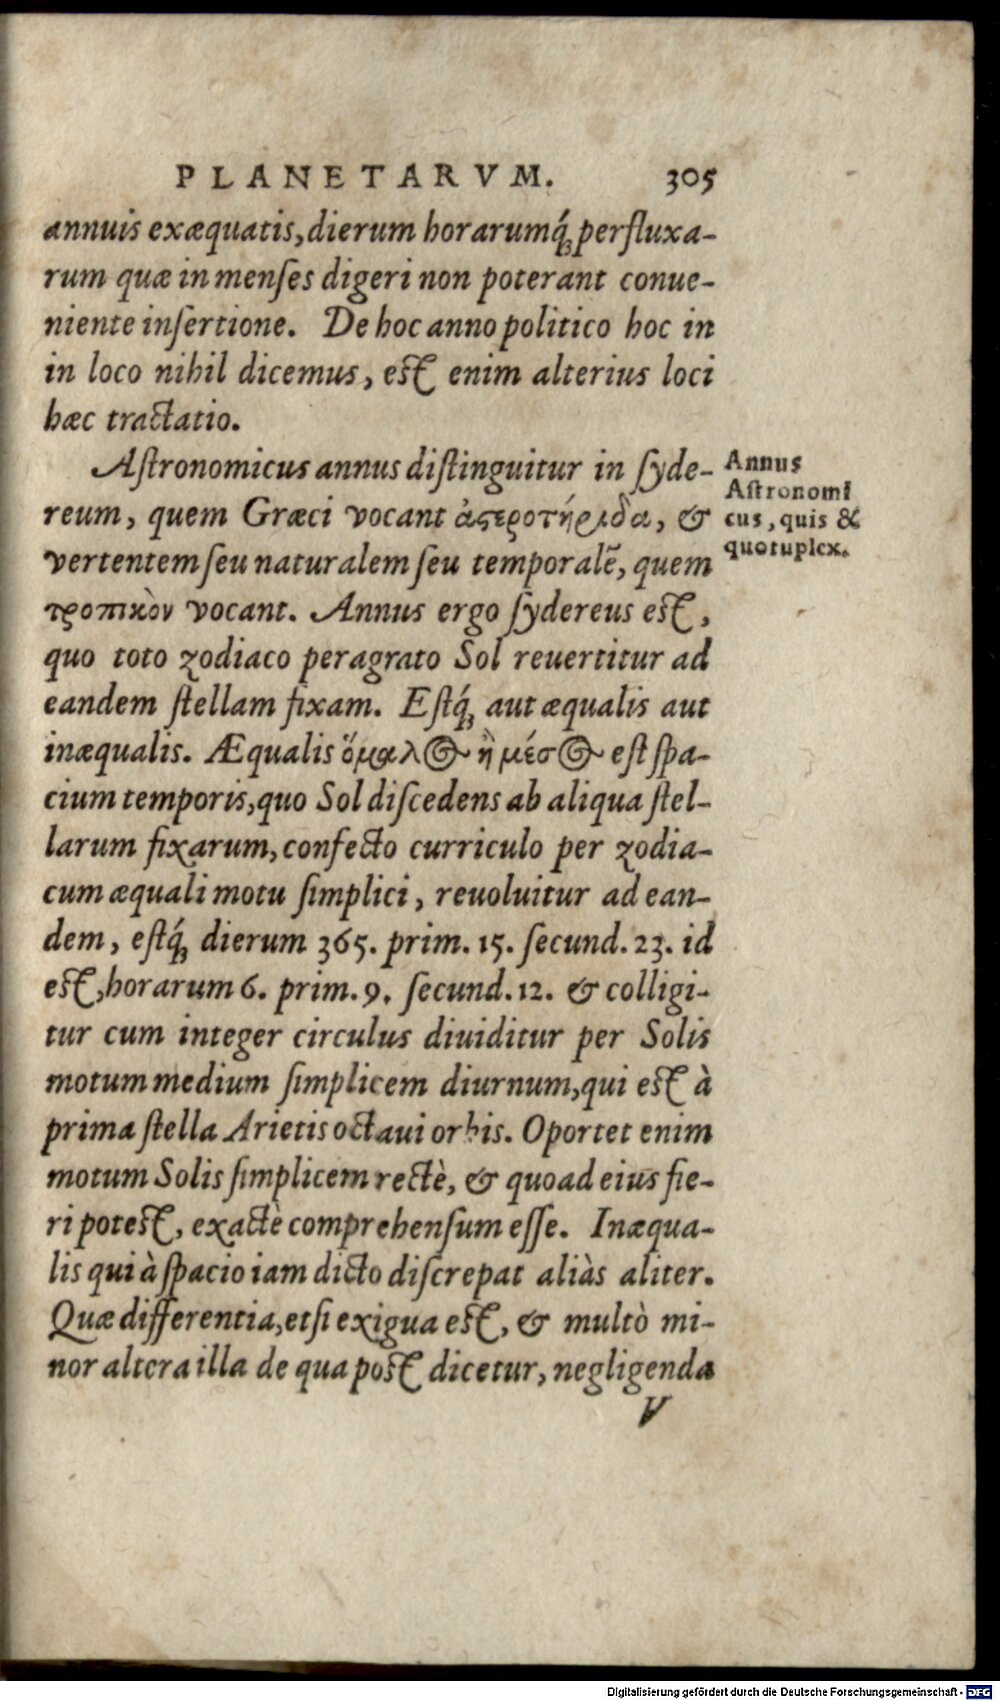 PLANETARVM. 305
annuis exæquatis, dierum horarumq́; perfluxa-
rum quæ in menſes digeri non poterant conue-
niente inſertione. De hoc anno politico hoc in
in loco nihil dicemus, eſt enim alterius loci
hæc tractatio.
Aſtronomicus annus diſtinguitur in ſyde-
reum, quem Græci vocant ἀϛεροτήριδα, &
vertentem ſeu naturalem ſeu temporalẽ, quem
τροπικὸν vocant. Annus ergo ſydereus eſt,
quo toto zodiaco peragrato Sol reuertitur ad
eandem ſtellam fixam. Eſtq́; aut æqualis aut
inæqualis. Æqualis ὅμαλος ἢ μέσος eſt ſpa-
cium temporis, quo Sol diſcedens ab aliqua ſtel-
larum fixarum, confecto curriculo per zodia-
cum æquali motu ſimplici, reuoluitur ad ean-
dem, eſtq́; dierum 365. prim. 15. ſecund. 23. id
eſt, horarum 6. prim. 9. ſecund. 12. & colligi-
tur cum integer circulus diuiditur per Solis
motum medium ſimplicem diurnum, qui eſt à
prima ſtella Arietis octaui orbis. Oportet enim
motum Solis ſimplicem rectè, & quoad eius fie-
ri poteſt, exactè comprehenſum eſſe. Inæqua-
lis qui à ſpacio iam dicto diſcrepat aliàs aliter.
Quæ differentia, etſi exigua eſt, & multò mi-
nor altera illa de qua poſt dicetur, negligenda
V
Annus
Aſtronomi
cus, quis &
quotuplex.
Digitalisierung gefördert durch die Deutsche Forschungsgemeinschaft - DFG